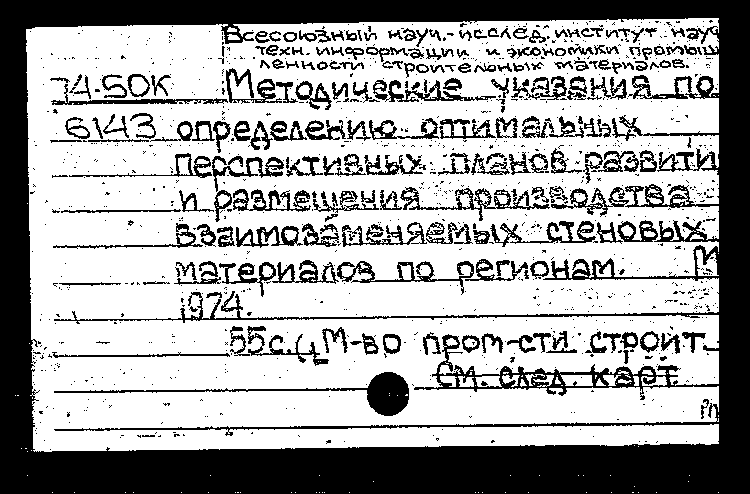 Всесоюзный науч.-исслед. институт науч
техн. информации и экономики промыш
ленности строительных материалов.
74-50К Методические указания по
6143 определению оптимальных
перспективных планов развити
и размещения производства
взаимозаменяемых стеновых
материалов по регионам. М
1974.
55с. (М-во пром-сти строит.
См. след. карт